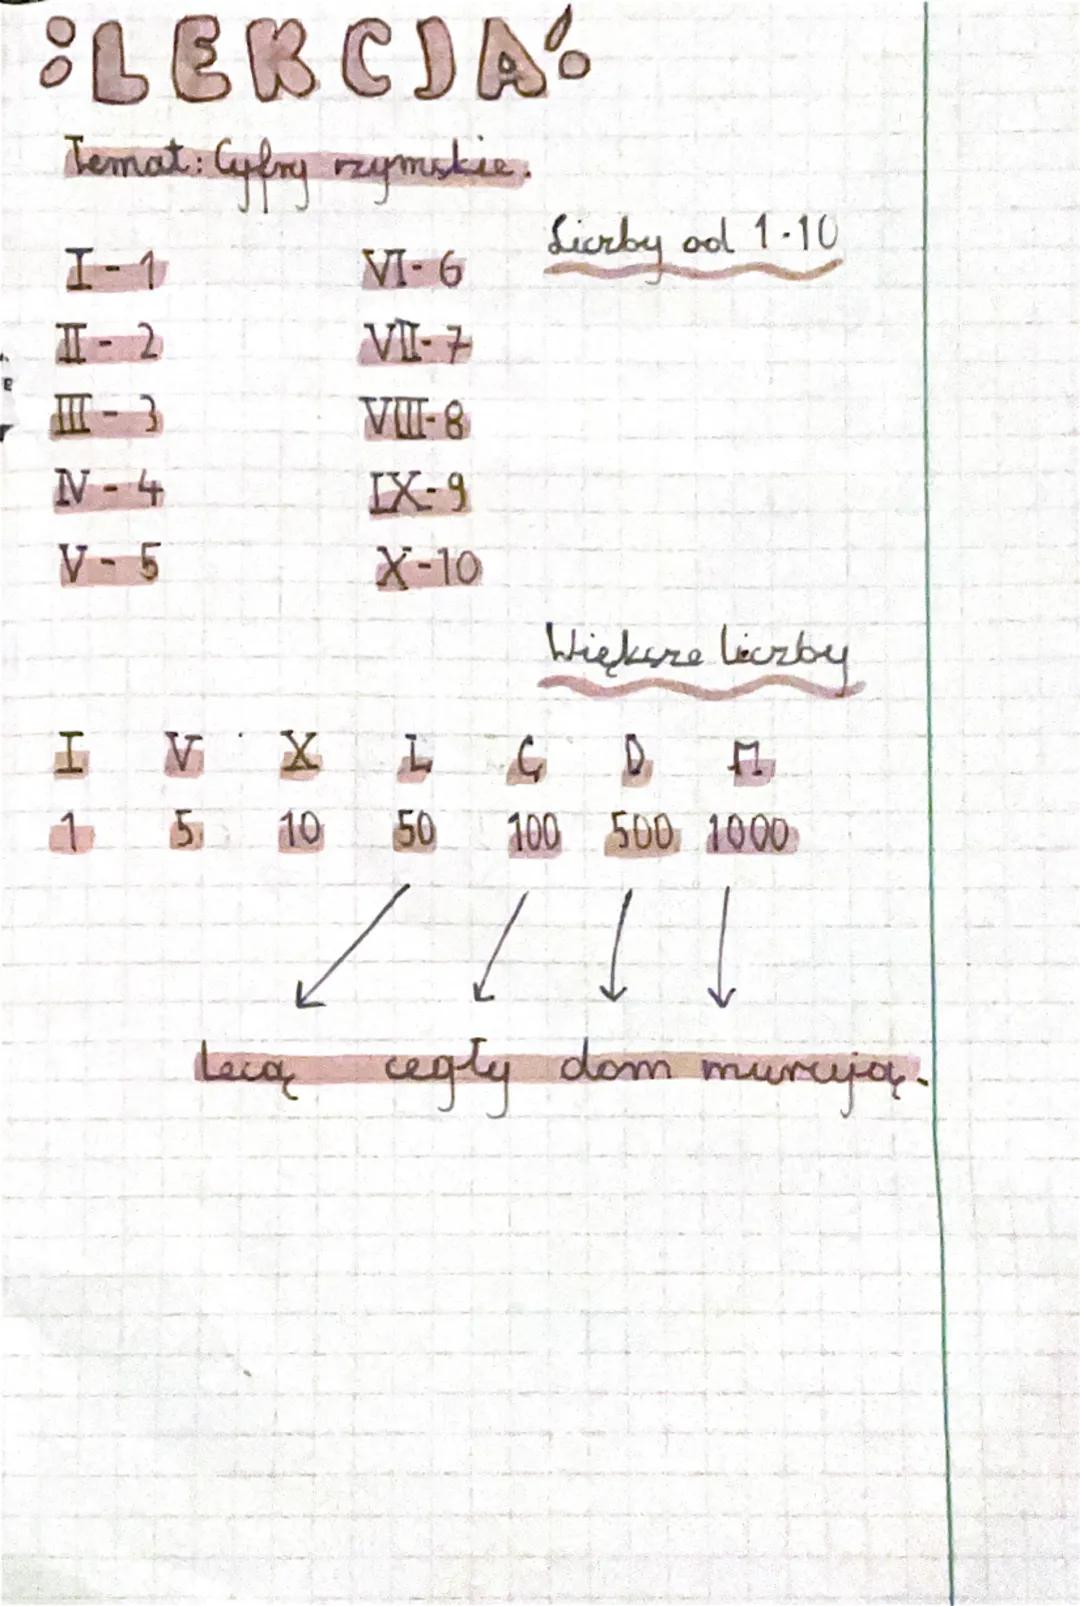 LEKCJA
Temat: Cyfry rzymskie.
Liczby od 1-10
I - 1 VI - 6
II - 2 VII - 7
III - 3 VIII - 8
IV - 4 IX - 9
V - 5 X - 10
Większe liczby
I V X L C D M
1 5 10 50 100 500 1000
Lecą cegły dom murują.